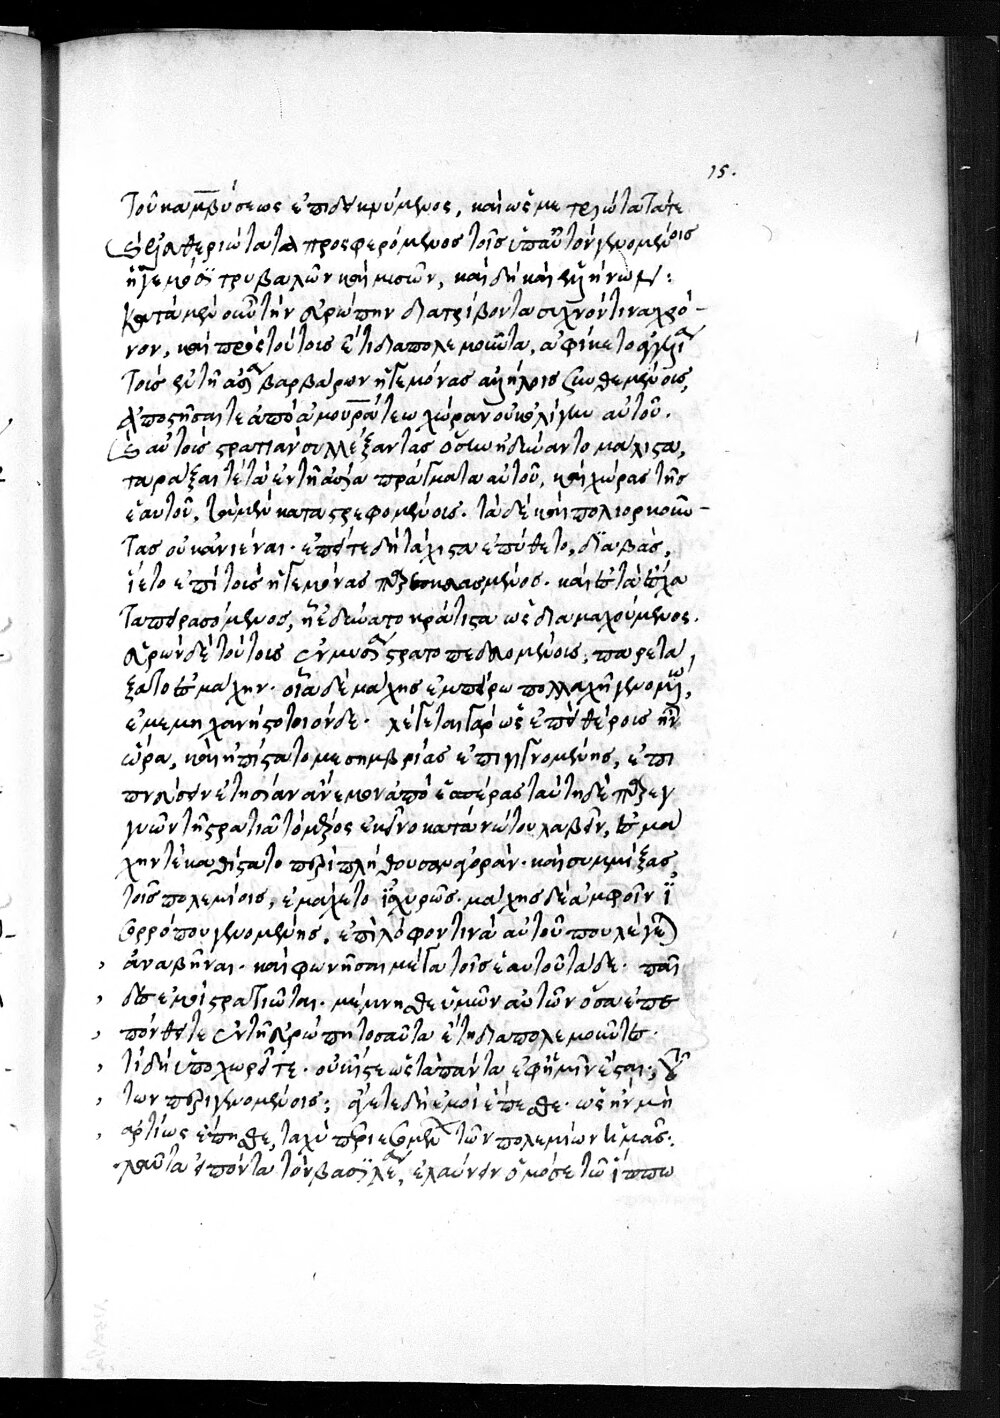 15.
τοῦ καμβύσεως ἐπιδεικνύμενος, καὶ ὡς μετριώτατά τε
καὶ ἐλευθεριώτατα προσφερόμενος τοῖς ὑπ' αὐτὸν γενομένοις
ἡγεμόσι τριβαλῶν καὶ μυσῶν, καὶ δὴ καὶ ἑλλήνων:
Κατὰ μὲν οὖν τὴν εὐρώπην διατρίβοντα συχνόν τινα χρό-
νον, καὶ πρὸς τούτοις ἔτι διαπολεμοῦντα, ἀφίκετο ἀγγελία
τοὺς ἐν τῇ ἀσίᾳ βαρβάρων ἡγεμόνας ἀλλήλοις συνθεμένους,
ἀποστῆσαί τε ἀπὸ ἀμουράτεω χώραν οὐκ ὀλίγην αὐτοῦ.
καὶ αὐτοὺς στρατιὰν συλλέξαντας ὅσην ἠδύναντο μάλιστα,
ταράξαι τε τὰ ἐν τῇ ἀσίᾳ πράγματα αὐτοῦ, καὶ χώρας τῆς
ἑαυτοῦ, τὰ μὲν καταστρεφομένους. τὰ δὲ καὶ πολιορκοῦν-
τας οὐκ ἀνιέναι. ἐπεί τε δὴ τάχιστα ἐπύθετο, διαβὰς,
ἵετο ἐπὶ τοὺς ἡγεμόνας παρεσκευασμένος. καὶ τὰ
τα πειρασόμενος, ᾗ ἐδύνατο κράτιστα ὡς διαμαχούμενος.
εὑρὼν δὲ τούτους ἐν μυσίᾳ στρατοπεδευομένους, παρετά
ξατο εἰς μάχην. οἷα δὲ μάχης ἐμπείρῳ πολλαχῇ γενομένῳ,
ἐμεμηχάνητο τοιόνδε. λέγεται γὰρ ὡς ἐπεὶ θέρους ἦν
ὥρα, καὶ ἠπίστατο μεσημβρίας ἐπιγιγνομένης, ἐπι
πνεύσειν ἐτησίαν ἄνεμον ἀπὸ ἑσπέρας ταύτῃ δὲ παρεγ
γυῶν τῇ στρατιᾷ τὸ μέρος ἐκεῖνο κατὰ νώτου λαβεῖν, εἰς μά
χην τε καθίστατο περὶ πλήθουσαν ἀγοράν. καὶ συμμίξας
τοῖς πολεμίοις, ἐμάχετο ἰσχυρῶς. μάχης δὲ ἀμφοῖν ἰ
σορρόπου γενομένης, ἐπὶ λόφον τινὰ αὐτοῦ που λέγεται
ἀναβῆναι. καὶ φωνῆσαι μέγα τοῖς ἑαυτοῦ τάδε. παῖ
δες ἐμοὶ στρατιῶται. μέμνησθε ὑμῶν αὐτῶν ὅσα ἐπε
πόνθειτε ἐν τῇ εὐρώπῃ τοσαῦτα ἔτη διαπολεμοῦντες.
τί δὴ ὑποχωρεῖτε. οὐκ ἴστε ὡς τὰ πάντα ἐφ' ἡμῖν ἔσται,
των περιγενομένοις; ἄγετε δὴ ἐμοὶ ἕπεσθε. ὡς ἢν μὴ
ἀρτίως ἕπησθε, ταχὺ περιεσομένων τῶν πολεμίων ὑμᾶς.
ταῦτα εἰπόντα τὸν βασιλέα, ἐλαύνειν ὁμόσε τῷ ἵππῳ